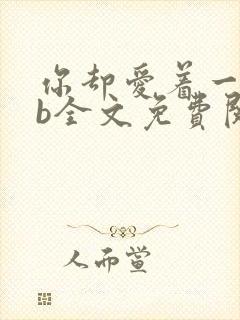 你却爱着一
b全文免费阅
人而蛍